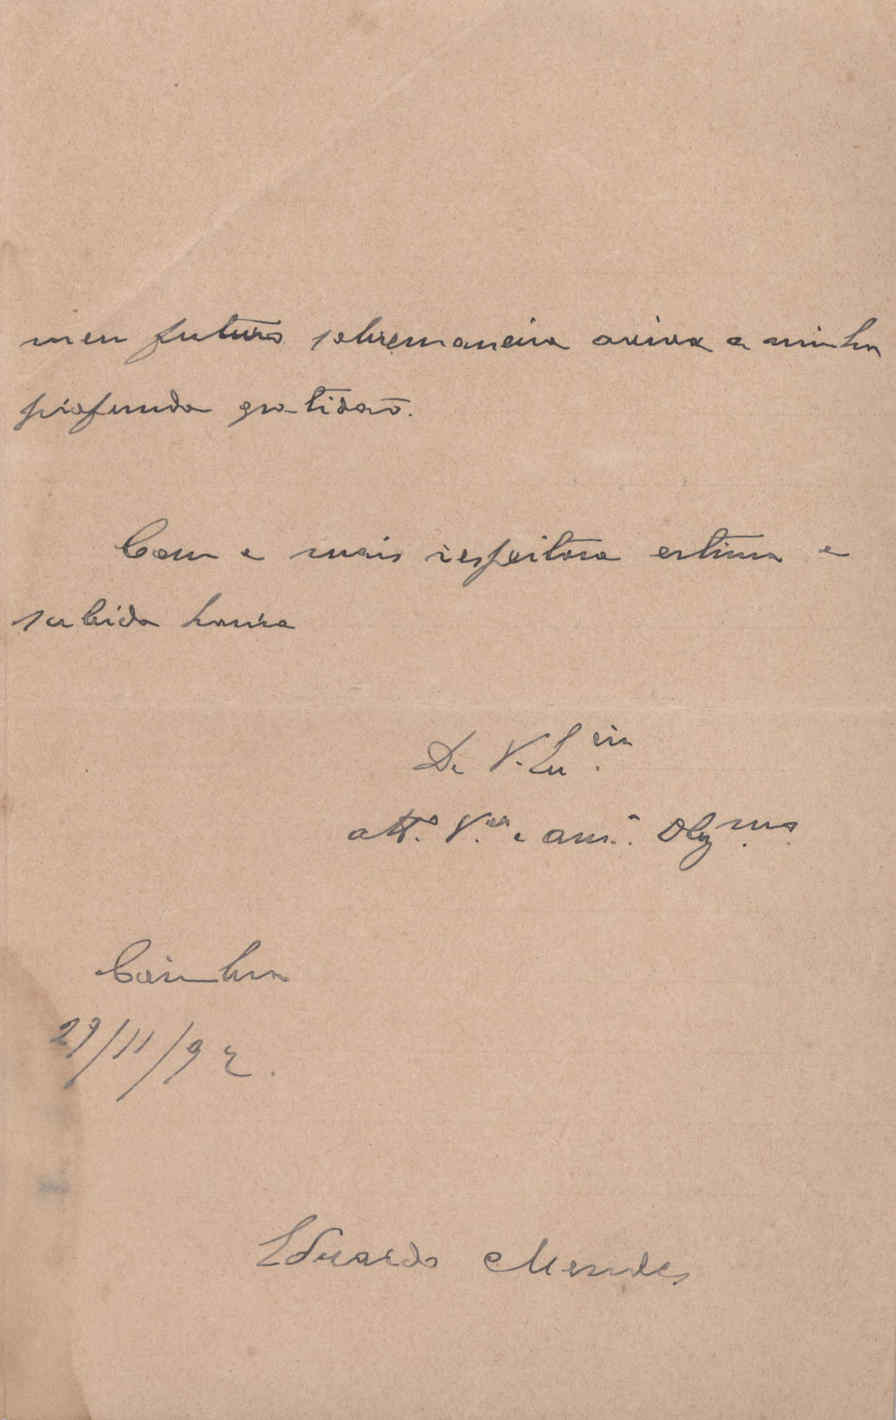 meu futuro sobremaneira aviva a minha
profunda gratidão.
Com a mais respeitosa estima e
subida honra
De V. Ex.cia
att.o V.or e am.o Obg.mo
Coimbra
29/11/92.
Eduardo Mendes